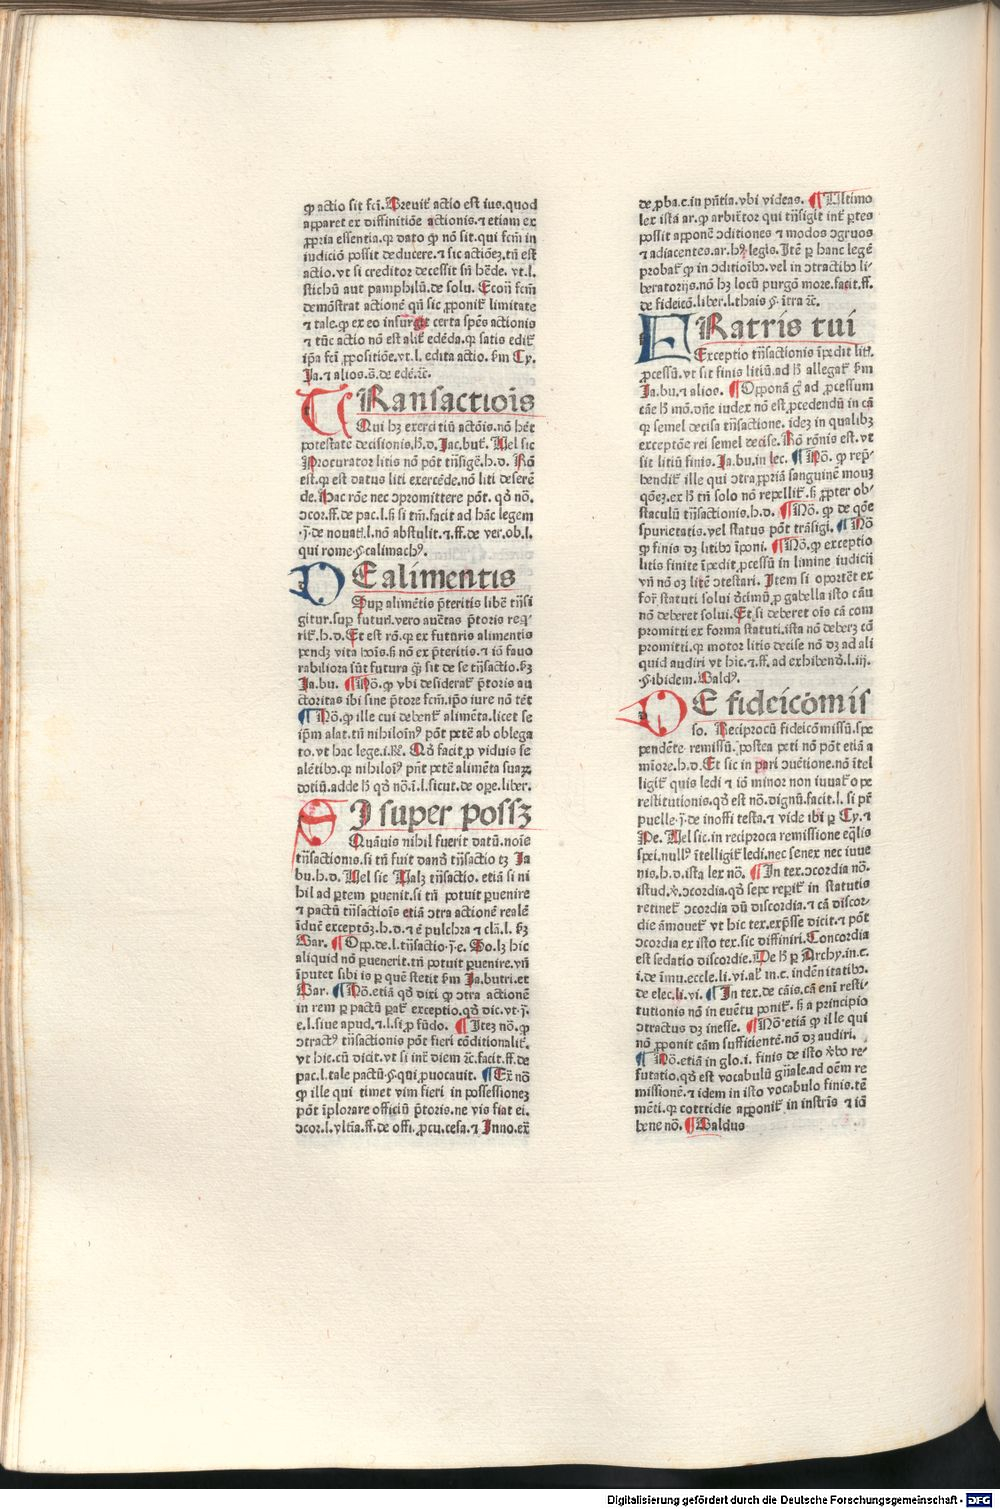 ꝙ actio sit fcī. Breuit̄ actio est ius. quod
apparet ex diffinitiōe actionis. ⁊ etiam ex
ꝓpria essentia. ꝙ dato ꝙ nō sit. qui fcm̄ in
iudiciō possit deducere. ⁊ sic actiōeꝫ. tn̄ est
actio. vt si creditor decessit sn̄ hēde. vt. l.
stichū aut pamphilū. de solu. Ecōn fcm̄
demōstrat actionē qn̄ sic ꝓponit̄ limitate
⁊ tale. ꝙ ex eo insurgit certa spēs actionis
⁊ tūc actio nō est alit̄ edēda. ꝙ satis edit̄
ip̄a fcī ꝓpositiōe. vt. l. edita actio. fm̄ Cy.
Ja. ⁊ alios. s̄. de edē. ꝛc̄.
TRansactiōis
Qui hꝫ exercitiū actōis. nō hēt
potestatē decisionis. h̄. d. Jac. but̄. Vel sic
Procurator litis nō pōt tn̄sigē. h. d. Rō
est. ꝙ est datus liti exercēde. nō liti deserē
de. Hac rōe nec ↄpromittere pōt. qđ nō.
ↄcor. ff. de pac. l. s̄ si tm̄. facit ad hāc legem
.j̄. de nouatī. l. nō abstulit. ⁊. ff. de ver. ob. l.
qui rome. §. calimachꝰ.
DE alimentis
Sup̱ alimētis p̄teritis libē tn̄si
gitur. sup̱ futur̄. vero auc̄tas p̄toris req̇
rit̄. h. d. Et est rō. ꝙ ex futuris alimentis
pendꝫ vita hoīs. s̄ nō ex p̄teritis. ⁊ iō fauo
rabiliora sūt futura q̄ sit de se tn̄sactio. fꝫ
Ja. bu. ¶ Nō. ꝙ vbi desiderat̄ p̄toris au
ctoritas ibi sine p̄tore fcm̄. ip̄o iure nō tēt
¶ Nō. ꝙ ille cui debent̄ alimēta. licet se
ip̄m alat. tn̄ nihiloīnꝰ pōt petē ab oblega
to. vt hac lege. i. Rn̄. Nō facit ꝓ viduis se
alētibꝰ. ꝙ nihiloīꝰ pn̄t petē alimēta suaꝝ
dotiū. adde h̄ qđ nō. ī. l. sicut. de ope. liber.
SI super possꝫ
Quāuis nihil fuerit datū. noīe
tn̄sactionis. si tn̄ fuit danđ tn̄sactio tꝫ Ja
bu. h. d. Vel sic Valꝫ tn̄sactio. etiā si ni
hil ad ꝑtem ꝑuenit. si tn̄ potuit ꝑuenire
⁊ pactū tn̄sactiois etiā ↄtra actionē realē
īducē exceptōꝫ. h. d. ⁊ ē pulchra ⁊ clā. l. fꝫ
Bar. ¶ Opp. de. l. tn̄sactio. j̄. e. So. lꝫ hic
aliquid nō ꝑuenerit. tn̄ potuit ꝑuenire. vn̄
īputet sibi is ꝑ quē stetit fm̄ Ja. butri. et
Bar. ¶ Nō. etiā qđ dixi ꝙ ↄtra actionē
in rem ꝑ pactū ꝑat̄ exceptio. qđ dic. vt. j̄.
e. l. siue apud. ⁊. l. si ꝓ fūdo. ¶ Iteꝫ nō. ꝙ
ↄtractꝰ tn̄sactionis pōt fieri cōditionalit̄.
vt hic. cū dicit. vt si inf̄ diem ꝛc̄. facit. ff. de
pac. l. tale pactū. §. qui ꝓuocauit. ¶ Ex nō
ꝙ ille qui timet vim fieri in possessioneꝫ
pōt īplorare officiū p̄toris. ne vis fiat ei.
ↄcor. l. vltīa. ff. de offi. ꝓcu. cesa. ⁊ Inno. ex̄
de. ꝓba. c. in pn̄tia. vbi videas. ¶ Ultimo
lex ista ar. ꝙ arbit̄tor qui tn̄sigit int̄ ꝑtes
possit apponē ↄditiones ⁊ modos ↄgruos
⁊ adiacentes. ar. hꝰ. legis. Itē ꝑ hanc legē
probat̄ ꝙ in ↄditioībꝰ. vel in ↄtractibꝰ li-
beratorijs. nō hꝫ locū purgō more. facit. ff.
de fideicō. liber. l. thais §. ītra ꝛc̄.
FRatris tui
Exceptio tn̄sactionis īpedit litꝭ.
ꝓcessū. vt sit finis litiū. ad h̄ allegat̄ fm̄
Ja. bu. ⁊ alios. ¶ Opponā ꝙ ad ꝓcessum
cāe h̄ mō. dn̄e iudex nō est ꝓcedendū in cā
ꝙ semel decisa tn̄sactione. ideꝫ in qualibꝫ
exceptōe rei semel decise. Rō rōnis est. vt
sit litiū finis. Ja. bu. in lec. ¶ Nō. ꝙ rep̄-
hendit̄ ille qui ↄtra ꝓpriā sanguinē mouꝫ
qōeꝫ. ex h̄ tn̄ solo nō repellit̄. s̄ ꝓpter ob-
staculū tn̄sactionis. h. d. ¶ Nō. ꝙ de qōe
spurietatis. vel status pōt trāsigi. ¶ Nō
ꝙ finis dꝫ litibꝰ īponi. ¶ Nō. ꝙ exceptio
litis finite īpedit ꝓcessū in limine iudicij
vn̄ nō oꝫ litē ↄtestari. Item si oportēt ex
for̄ statuti solui đcimū ꝓ gabella isto cāu
nō deberet solui. Et si deberet oīs cā com
promitti ex forma statuti. ista nō deberꝫ cō
promitti. ꝙ motor litis decise nō dꝫ ad ali
quid audiri vt hic. ⁊. ff. ad exhibenđ. l. iij.
.§. ibidem. Baldꝰ.
DE fideicōmis
so. Reciprocū fideicōmissū. spe
pendēte remissū. postea peti nō pōt etiā a
mīore. h. d. Et sic in pari ↄuētione. nō ītel
ligit̄ quis ledi ⁊ iō minor non iuuat̄ ope
restitutionis. qđ est nō. dignū. facit. l. si pr̄
puelle. j̄. de inoffi testa. ⁊ vide ibi ꝑ Cy. ⁊
Pe. Vel sic. in reciproca remissione eq̄lis
spei. nullꝰ ītelligit̄ ledi. nec senex nec iuue
nis. h. d. ista lex nō. ¶ In tex. ↄcordia nō.
istud. v̄. ↄcordia. qđ sepe reperit̄ in statutis
retinet̄ ↄcordia dū discordia. ⁊ cā discor-
die āmouet̄ vt hic tex. exp̄sse dicit. ⁊ pōt
ↄcordia ex isto tex. sic diffiniri. Concordia
est sedatio discordie. De h̄ ꝑ Archy. in. c.
i. de īmu. eccle. li. vi. al̄ in. c. indēnitatibꝰ.
de elec. li. vi. ¶ In tex. de cāis. cā enī resti-
tutionis nō in euētu ponit̄. s̄ a principio
ↄtractus dꝫ inesse. ¶ Nō etiā ꝙ ille qui
nō ꝓponit cām sufficientē. nō dꝫ audiri.
¶ Nō. etiā in glo. i. finis de isto v̄bo re-
futatio. qđ est vocabulū gn̄ale. ad oēm re
missionē. ⁊ idem in isto vocabulo finis. tē
mēti. ꝙ cottidie apponit̄ in instrīs ⁊ iō
bene nō. ¶ Baldus
Digitalisierung gefördert durch die Deutsche Forschungsgemeinschaft - DFG